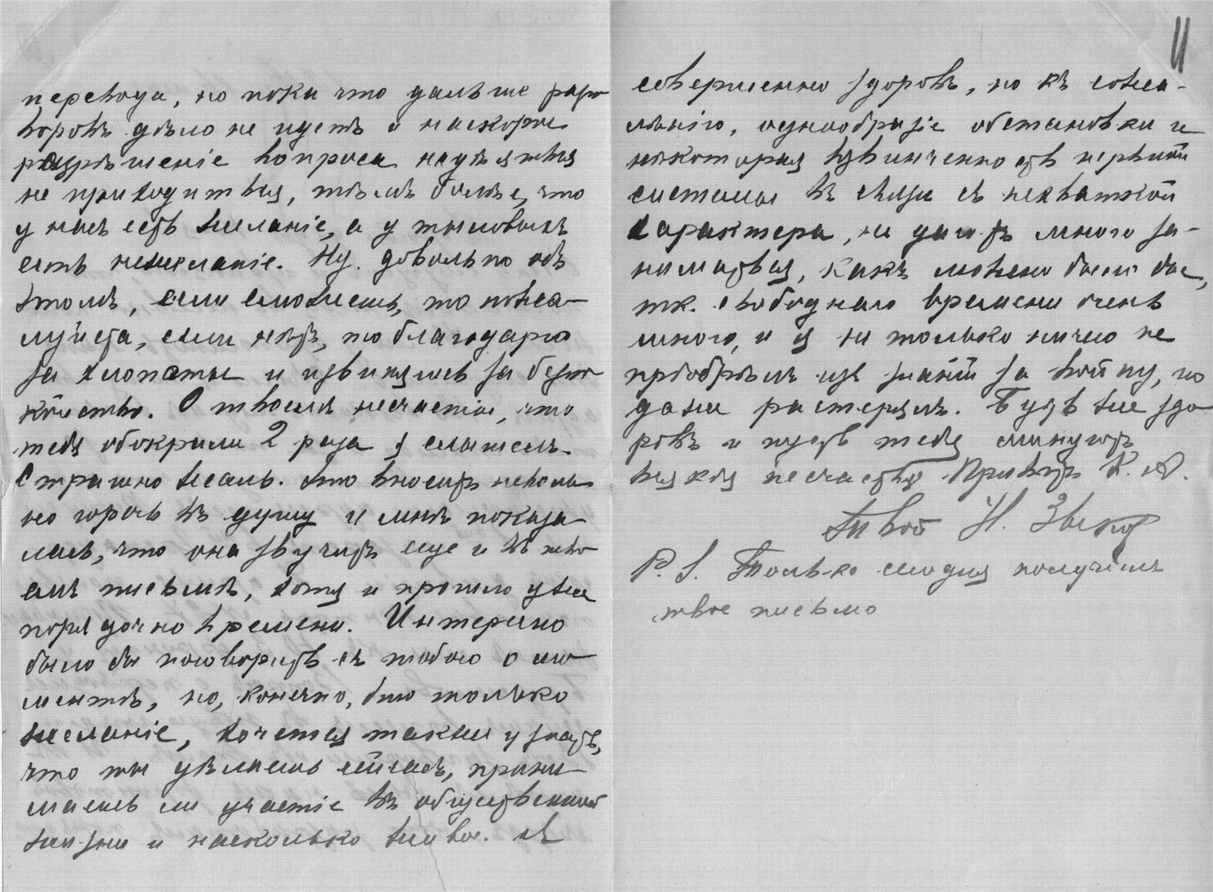 перевода, но пока что дальше разго
воровъ дѣло не идетъ и на скорое
разрѣшеніе вопроса надѣяться
не приходиться, тѣмъ болѣе, что
у насъ есть желаніе, а у тыловыхъ
есть нежеланіе. Ну довольно объ
этомъ, если сможешь, то пожа-
луйста, если нѣтъ, то благодарю
за хлопоты и извиняюсь за безпо
койство. О твоемъ несчастіи, что
тебя обокрали 2 раза я слышалъ.
Страшно жаль. Это вноситъ неволь
но горечь въ душу и мнѣ показа
лось, что она звучитъ еще и въ тво
емъ письмѣ, хотя и прошло уже
порядочно времени. Интересно
было бы поговорить съ тобою о мо
ментѣ, но, конечно, это только
желаніе, хочется также узнать,
что ты дѣлаешь сейчасъ, прини
маешь ли участіе въ общественной
жизни и насколько живое. Я
II
совершенно здоровъ, но къ сожа-
лѣнію, однообразіе обстановки и
нѣкоторая взвинченность нервной
системы въ связи съ нехваткой
характера, не даютъ много за-
ниматься, какъ можно было бы,
тк. свободнаго времени очень
много, и я не только ничего не
пріобрѣлъ изъ знаній за войну, но
даже растерялъ. Будь же здо
ровъ и пусть тебя минуютъ
всякія несчастья Привѣтъ К. А.
Твой Н.
P. S. Только сегодня получилъ
твое письмо